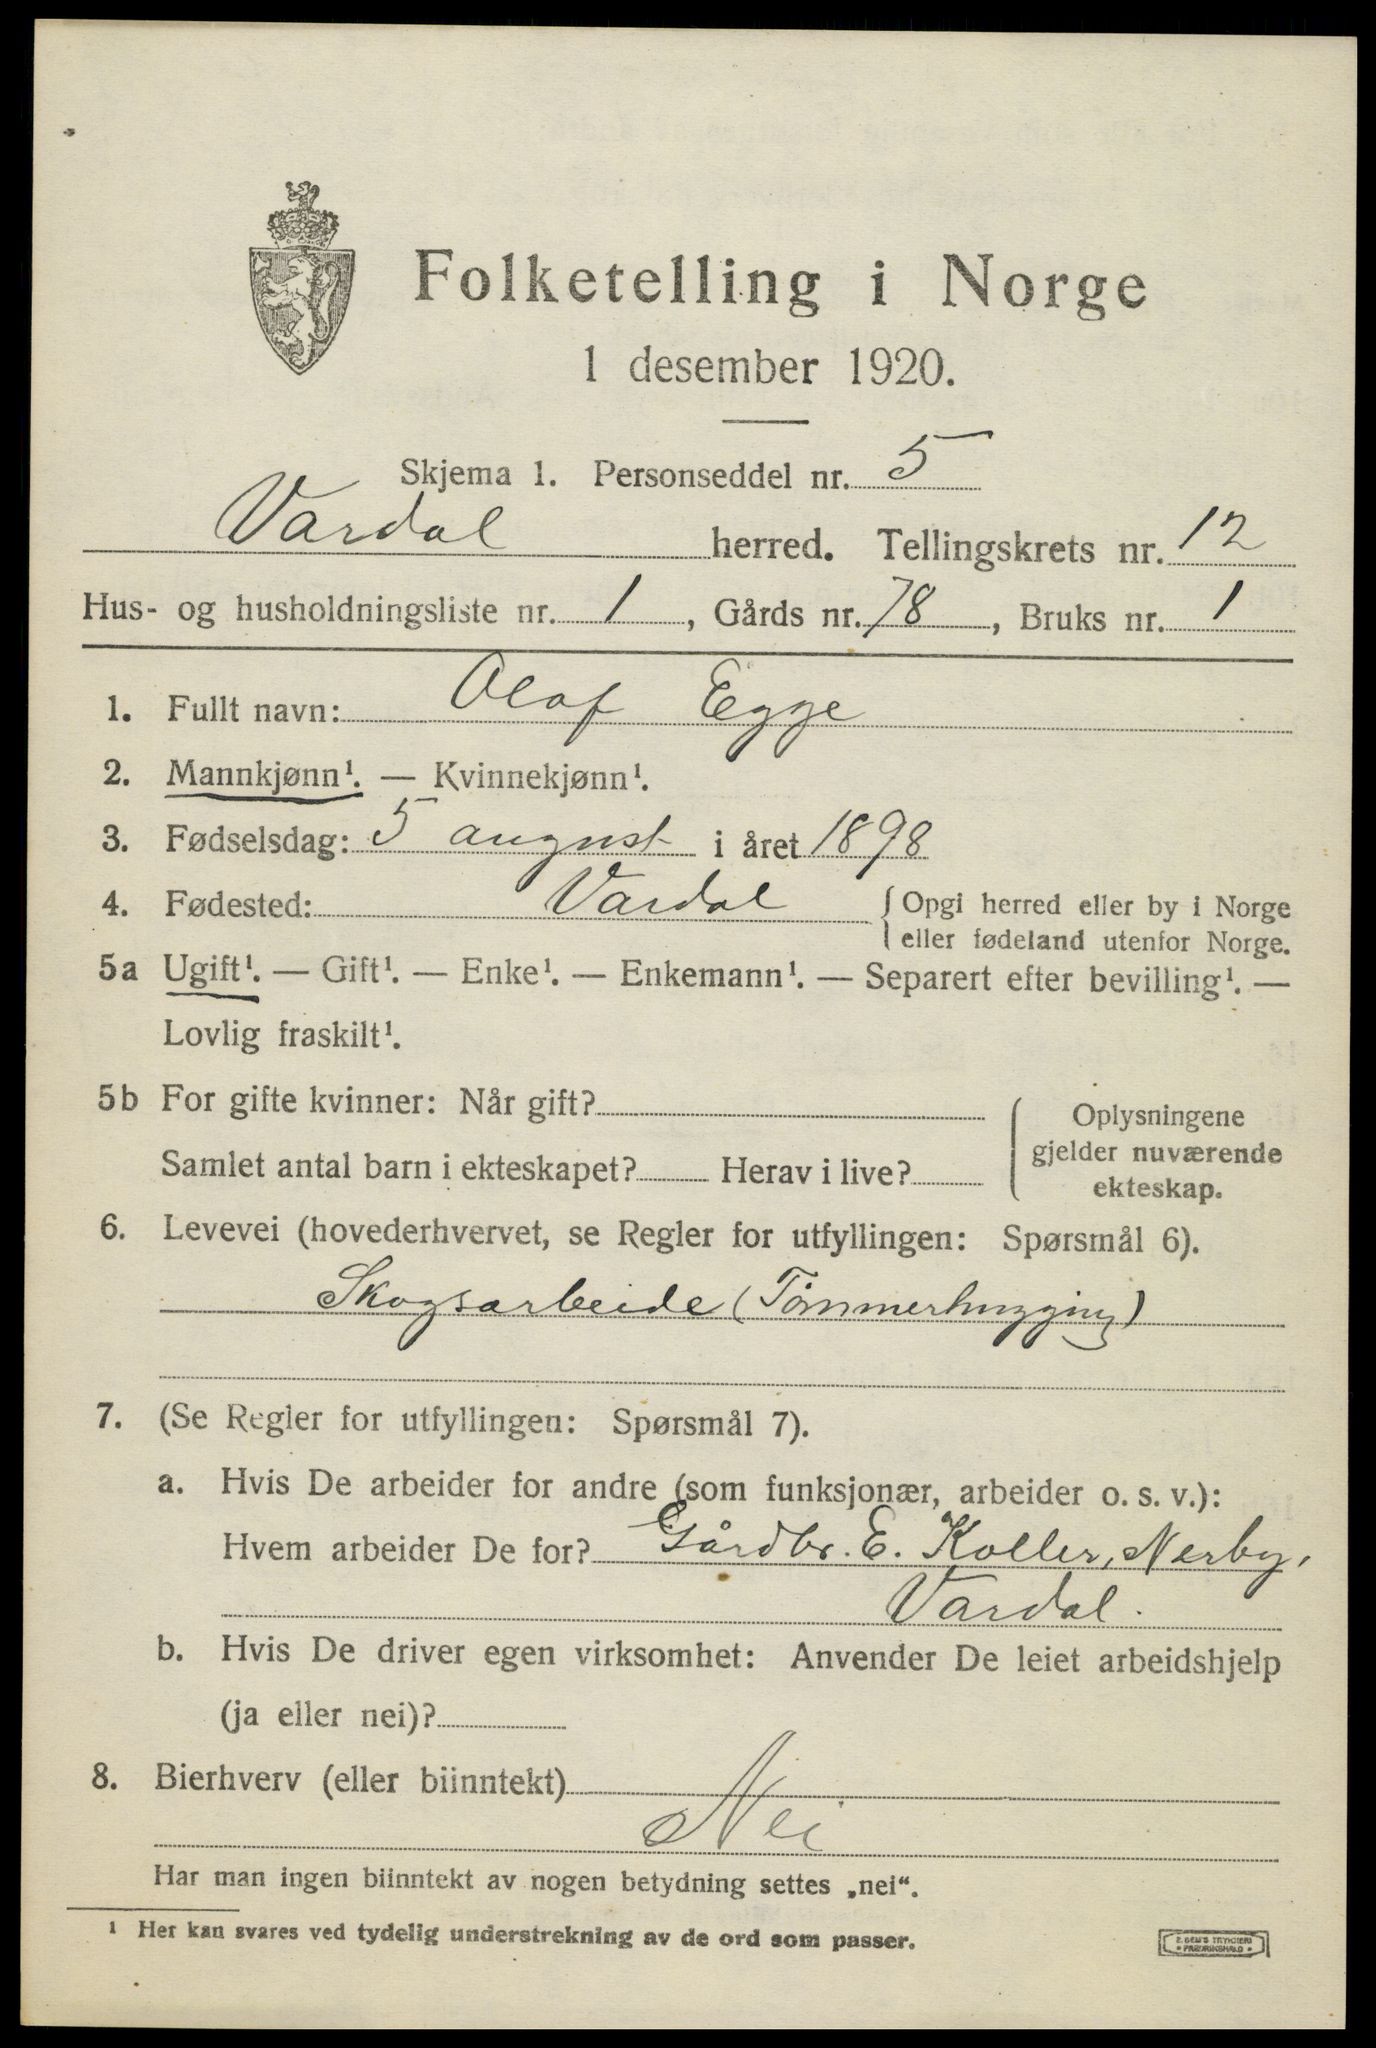 Folketelling i Norge
1 desember 1920.
Skjema 1. Personseddel nr. 5
Vardal herred. Tellingskrets nr. 12
Hus- og husholdningsliste nr. 1, Gårds nr. 78, Bruks nr. 1
1. Fullt navn: Olaf Egge
2. Mannkjønn¹. — Kvinnekjønn¹.
3. Fødselsdag: 5 august i året 1898
4. Fødested: Vardal { Opgi herred eller by i Norge
eller fødeland utenfor Norge.
5a Ugift¹. — Gift¹. — Enke¹. — Enkemann¹. — Separert efter bevilling¹. —
Lovlig fraskilt¹.
5b For gifte kvinner: Når gift?
Samlet antal barn i ekteskapet? Herav i live?
Oplysningene
gjelder nuværende
ekteskap.
6. Levevei (hovederhvervet, se Regler for utfyllingen: Spørsmål 6).
Skogsarbeide (Tömmerhugging)
7. (Se Regler for utfyllingen: Spørsmål 7).
a. Hvis De arbeider for andre (som funksjonær, arbeider o. s. v.):
Hvem arbeider De for? Gårdbr. E. Koller, Nerby,
Vardal.
b. Hvis De driver egen virksomhet: Anvender De leiet arbeidshjelp
(ja eller nei)?
8. Bierhverv (eller biinntekt)
Nei
Har man ingen biinntekt av nogen betydning settes „nei“.
¹ Her kan svares ved tydelig understrekning av de ord som passer.
E. SEM'S TRYKKERI
• FREDRIKSHALD •